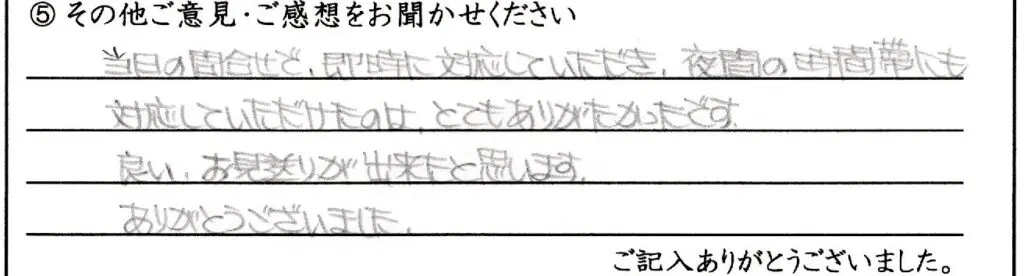 ⑤ その他ご意見・ご感想をお聞かせください
当日の問合せで、即時に対応していただき、夜間の時間帯にも
対応していただけたのは、とてもありがたかったです。
良い、お見送りが出来たと思います。
ありがとうございました。
ご記入ありがとうございました。